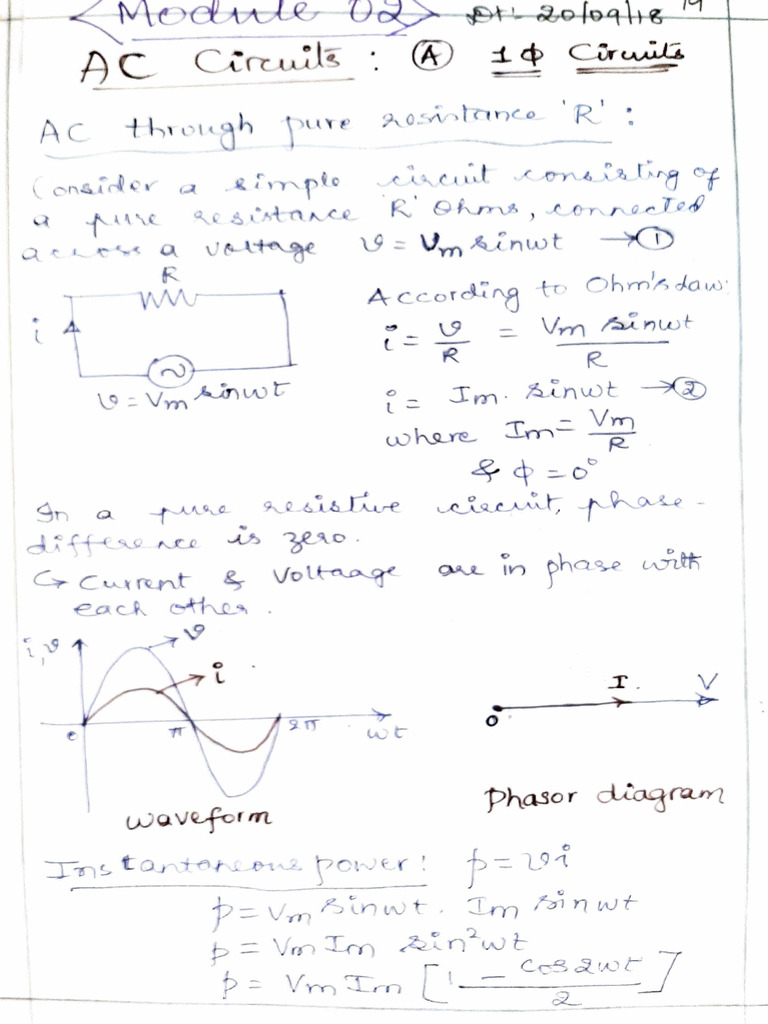 Module 02 Dt:- 20/09/18 19
AC Circuits : Ⓐ 1ϕ Circuits
AC through pure resistance 'R' :
Consider a simple circuit consisting of
a pure resistance 'R' Ohms, connected
across a voltage v = Vm sinωt → ①
R
i
v = Vm sinωt
According to Ohm's Law:
i = v/R = Vm sinωt / R
i = Im. sinωt → ②
where Im = Vm/R
& ϕ = 0°
In a pure resistive circuit, phase-
difference is zero.
↳ Current & Voltaage are in phase with
each other.
i,v v
i
0 π 2π ωt
waveform
0 I. V
Phasor diagram
Instantaneous power: p = vi
p = Vm sinωt. Im sinωt
p = Vm Im sin²ωt
p = Vm Im [1 - cos2ωt / 2]